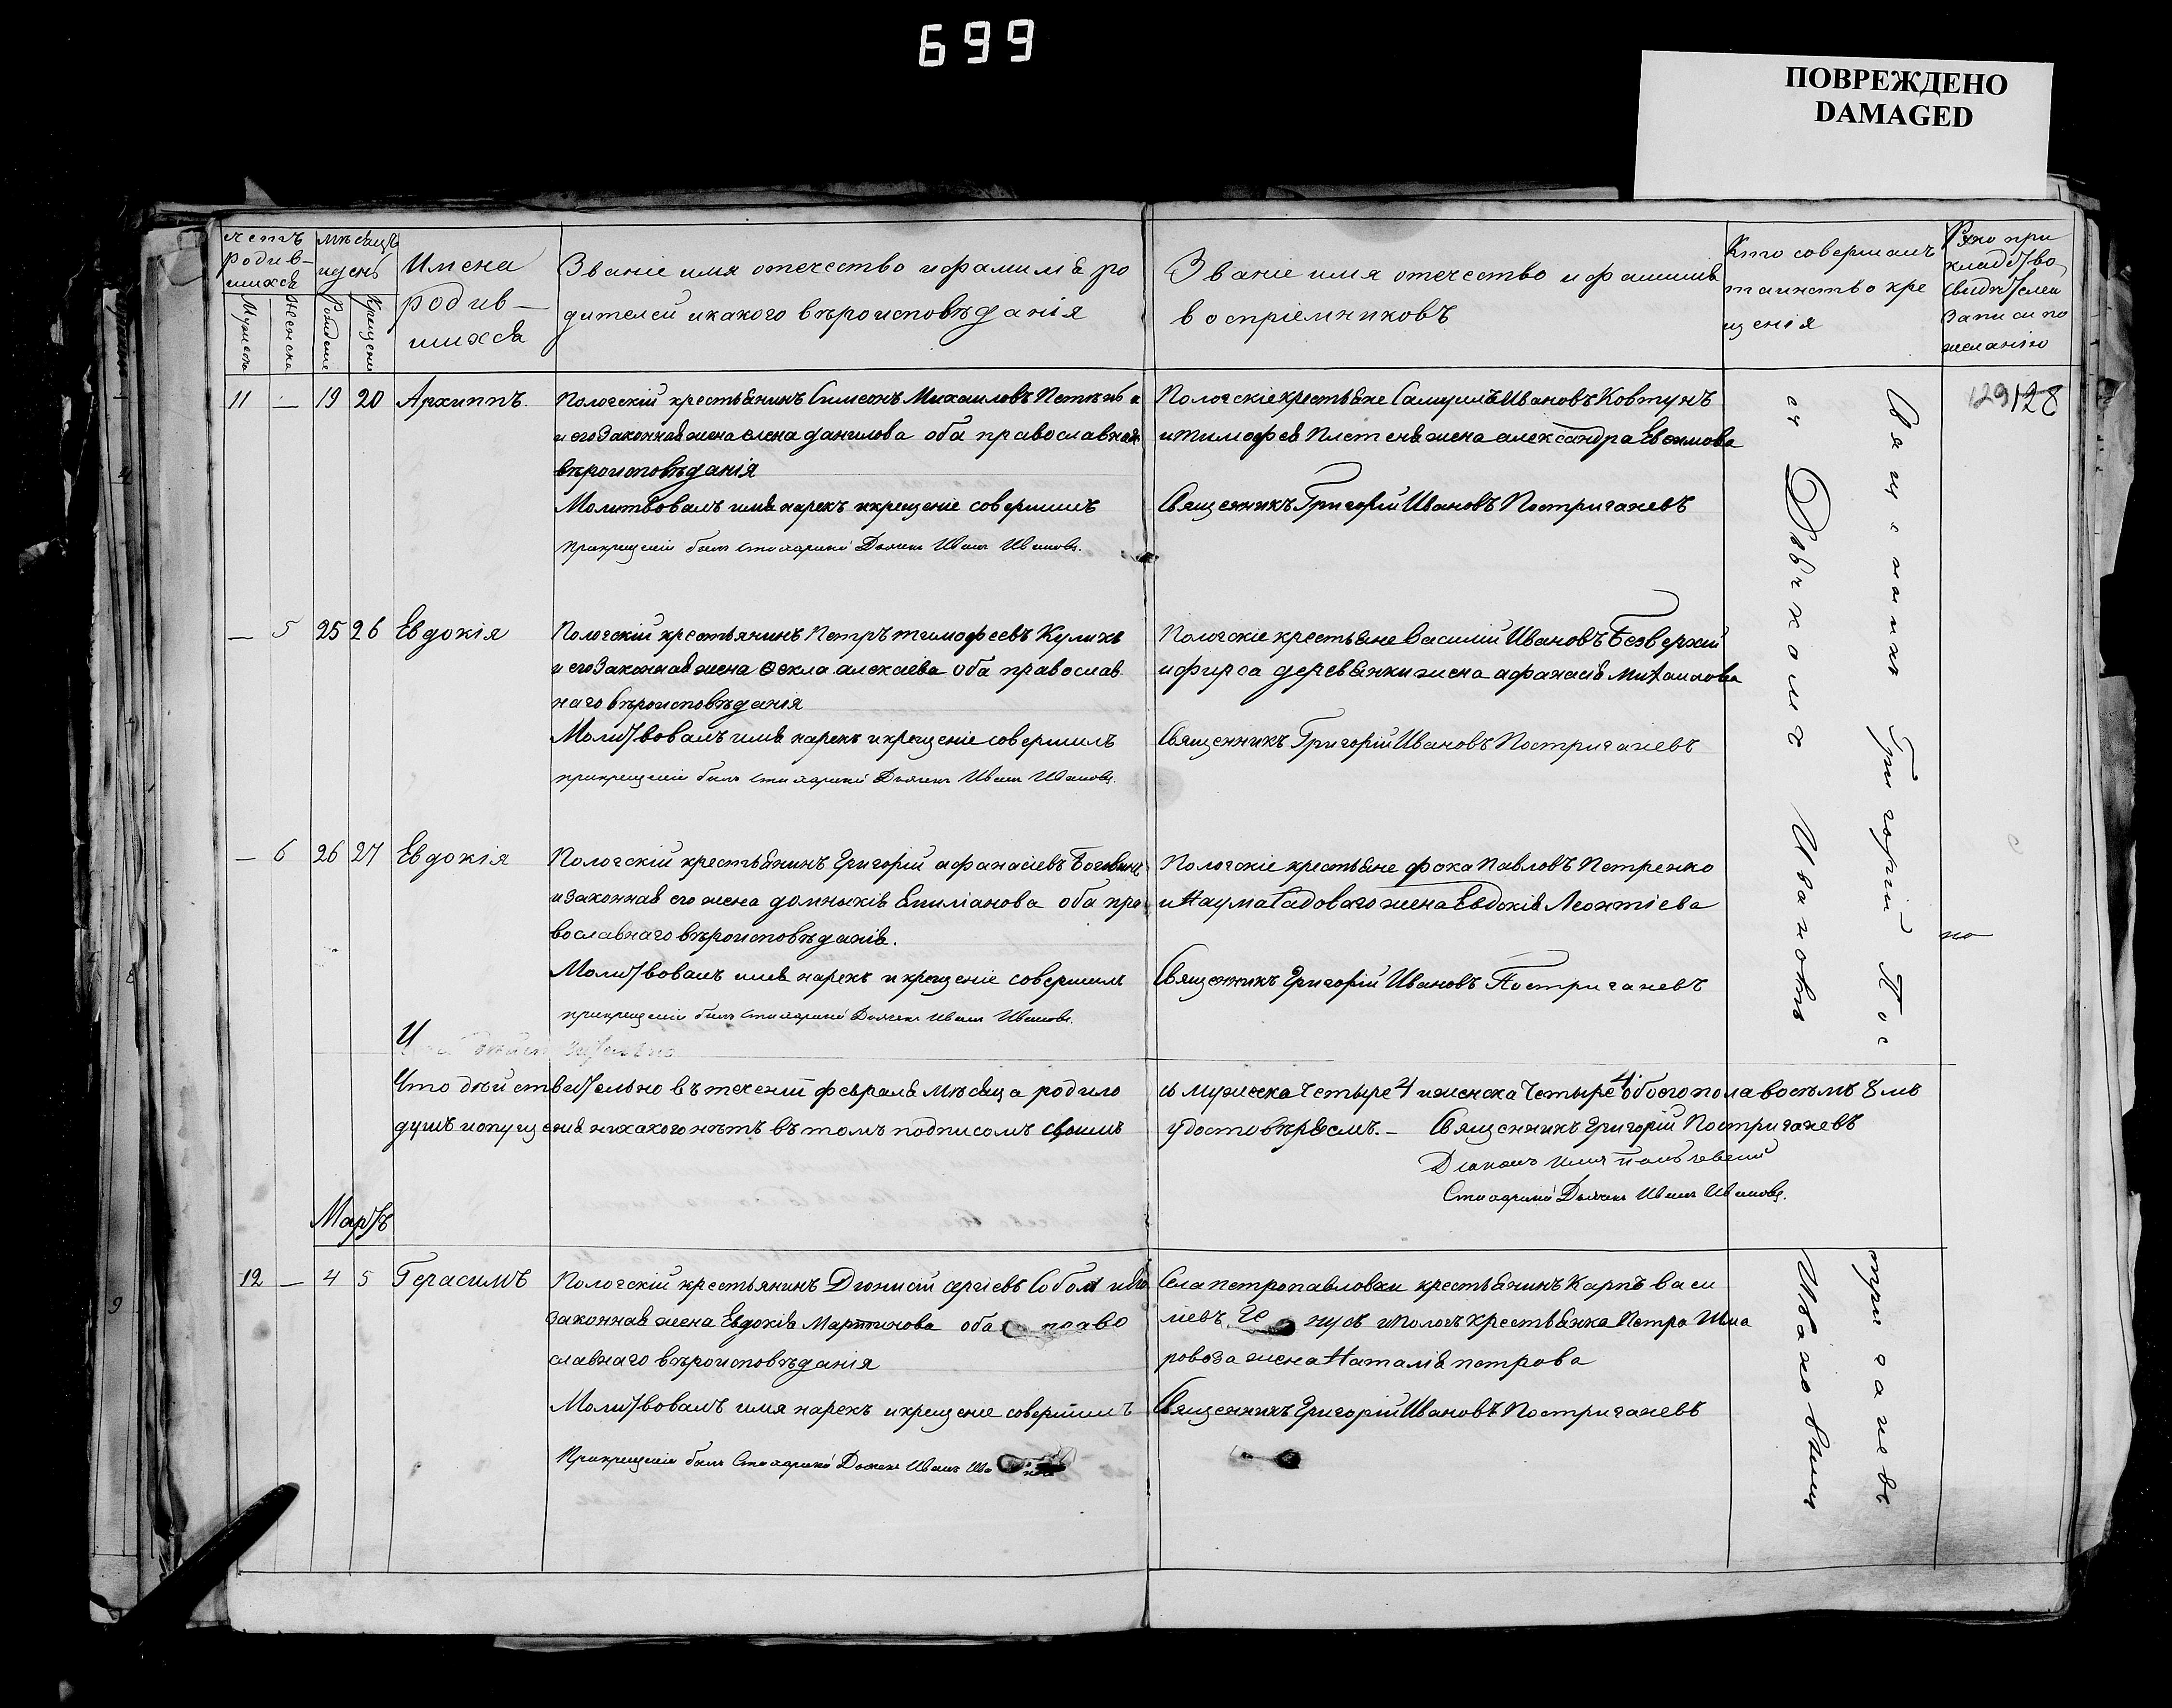 699
ПОВРЕЖДЕНО
DAMAGED
счетъ родив-шихся
Мужеска
Женска
мѣсяцъ идень
Рождение
Крещение
Имена родив-шихся
Званіе имя отечество ифамилія ро
дителей икакого вѣроисповѣданія
Званіе имя отечество ифамилія
воспріемниковъ
Кто совершалъ
таинство кре
щенія
Руко при
кладство
свидѣтелей
записи по
желанію
11 — 19 20 Архиппъ.
Пологскій крестьянинъ Симеонъ Михаиловъ
и его законная жена Елена данилова оба православнаго
вѣроисповѣданія
Молитвовалъ имя нарекъ икрещеніе совершилъ
прикрещеніи былъ Дьячекъ Иванъ Ивановъ.
Пологскіе крестьяне Самуилъ Ивановъ Ковтунъ
итимофея Плетеня жена александра Евфимова
Священникъ Григорій Ивановъ Постригачевъ
129 128
— 5 25 26 Евдокія
Пологскій крестьянинъ Петръ тимофеевъ Куликъ
и его законная жена Ѳекла алексіева оба православ
наго вѣроисповѣданія
Молитвовалъ имя нарекъ икрещеніе совершилъ
прикрещеніи былъ Дьячекъ Иванъ Ивановъ.
Пологскіе крестьяне Василій Ивановъ Безверхий
ифирса деревянки жена афанасія Михаилова
Священникъ Григорій Ивановъ Постригачевъ
— 6 26 27 Евдокія
Пологскій крестьянинъ Григорій афанасіевъ
изаконная его жена домникія Емиліанова оба пра
вославнаго вѣроисповѣданія.
Молитвовалъ имя нарекъ икрещеніе совершилъ
прикрещеніи былъ Дьячекъ Иванъ Ивановъ.
Пологскіе крестьяне фока Павловъ Петренко
и Наума Гадоваго жена Евдокія Леонтіева
Священникъ Григорій Ивановъ Постригачевъ
но
Что дѣйствительно втеченіи февраля мѣсяца родило
сь мужеска четыре 4 иженска четыре 4 обоего пола восѣмъ 8 мь
душъ ипущенія никакого нѣтъ втомъ подписомъ своимъ
удостовѣряемъ. — Священникъ Григорій Постригачевъ
Діаконъ
Дьячекъ Иванъ Ивановъ.
Священникъ Григорій Пос
съ Дьячкомъ Ивановъ
Мартъ
12 — 4 5 Герасимъ
Пологскій крестьянинъ Діонисій сергіевъ Соболь
законная жена Евдокія Мартинова оба право
славнаго вѣроисповѣданія
Молитвовалъ имя нарекъ икрещеніе совершилъ
Прикрещеніи былъ Дьячекъ Иванъ
Села петропавловки крестьянинъ Карпъ васи
ліевъ
ровоза жена Наталія петрова
Священникъ Григорій Ивановъ Постригачевъ
тригачевъ
Ивановымъ